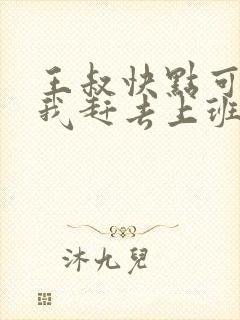 王叔快點可
我赶去上班
沐九兒